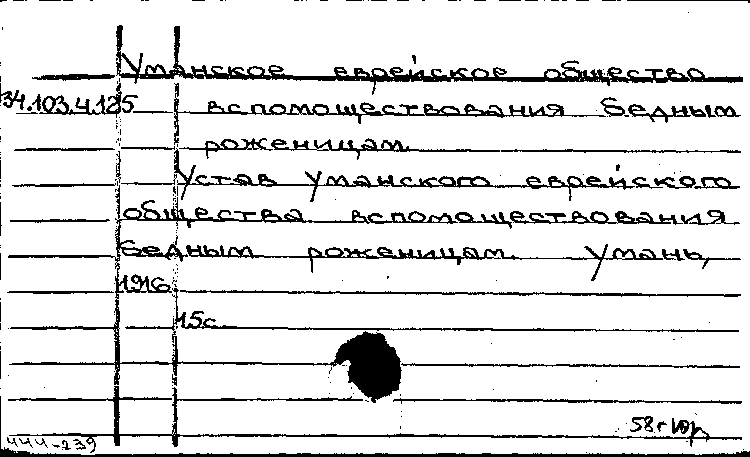 Уманское еврейское общество
34.103.4.125 вспомоществования бедным
роженицам.
Устав Уманского еврейского
общества вспомоществования
бедным роженицам. Умань,
1916.
15с.
58г Юр
444-239